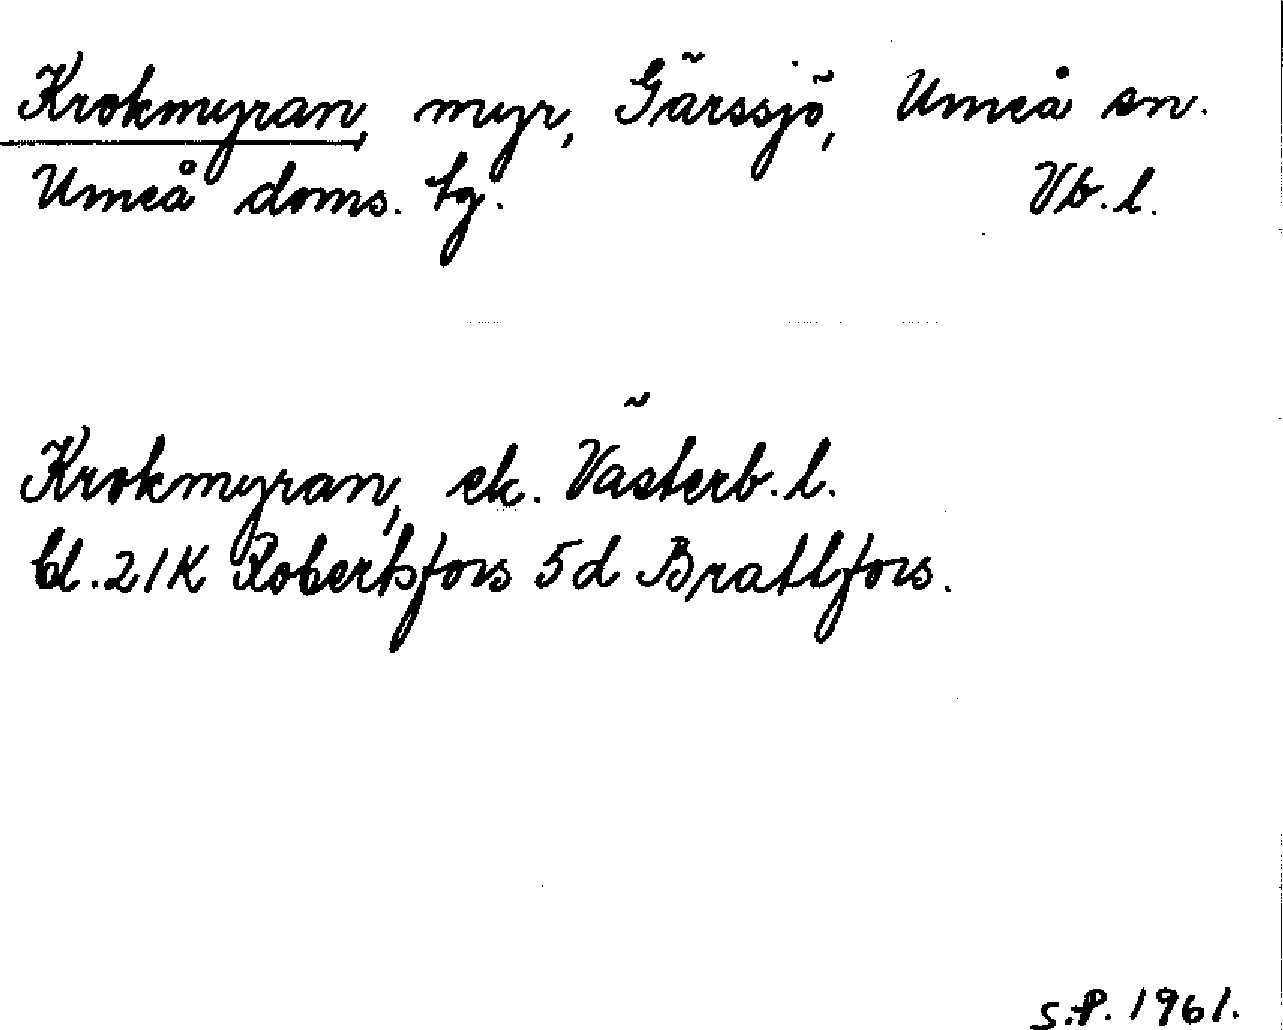 Krokmyran, myr, Gärssjö, Umeå sn.
Umeå doms. tg. Vb. l.
Krokmyran, ek. Västerb. l.
bl. 21K Robertsfors 5d Brattfors.
S.P. 1961.